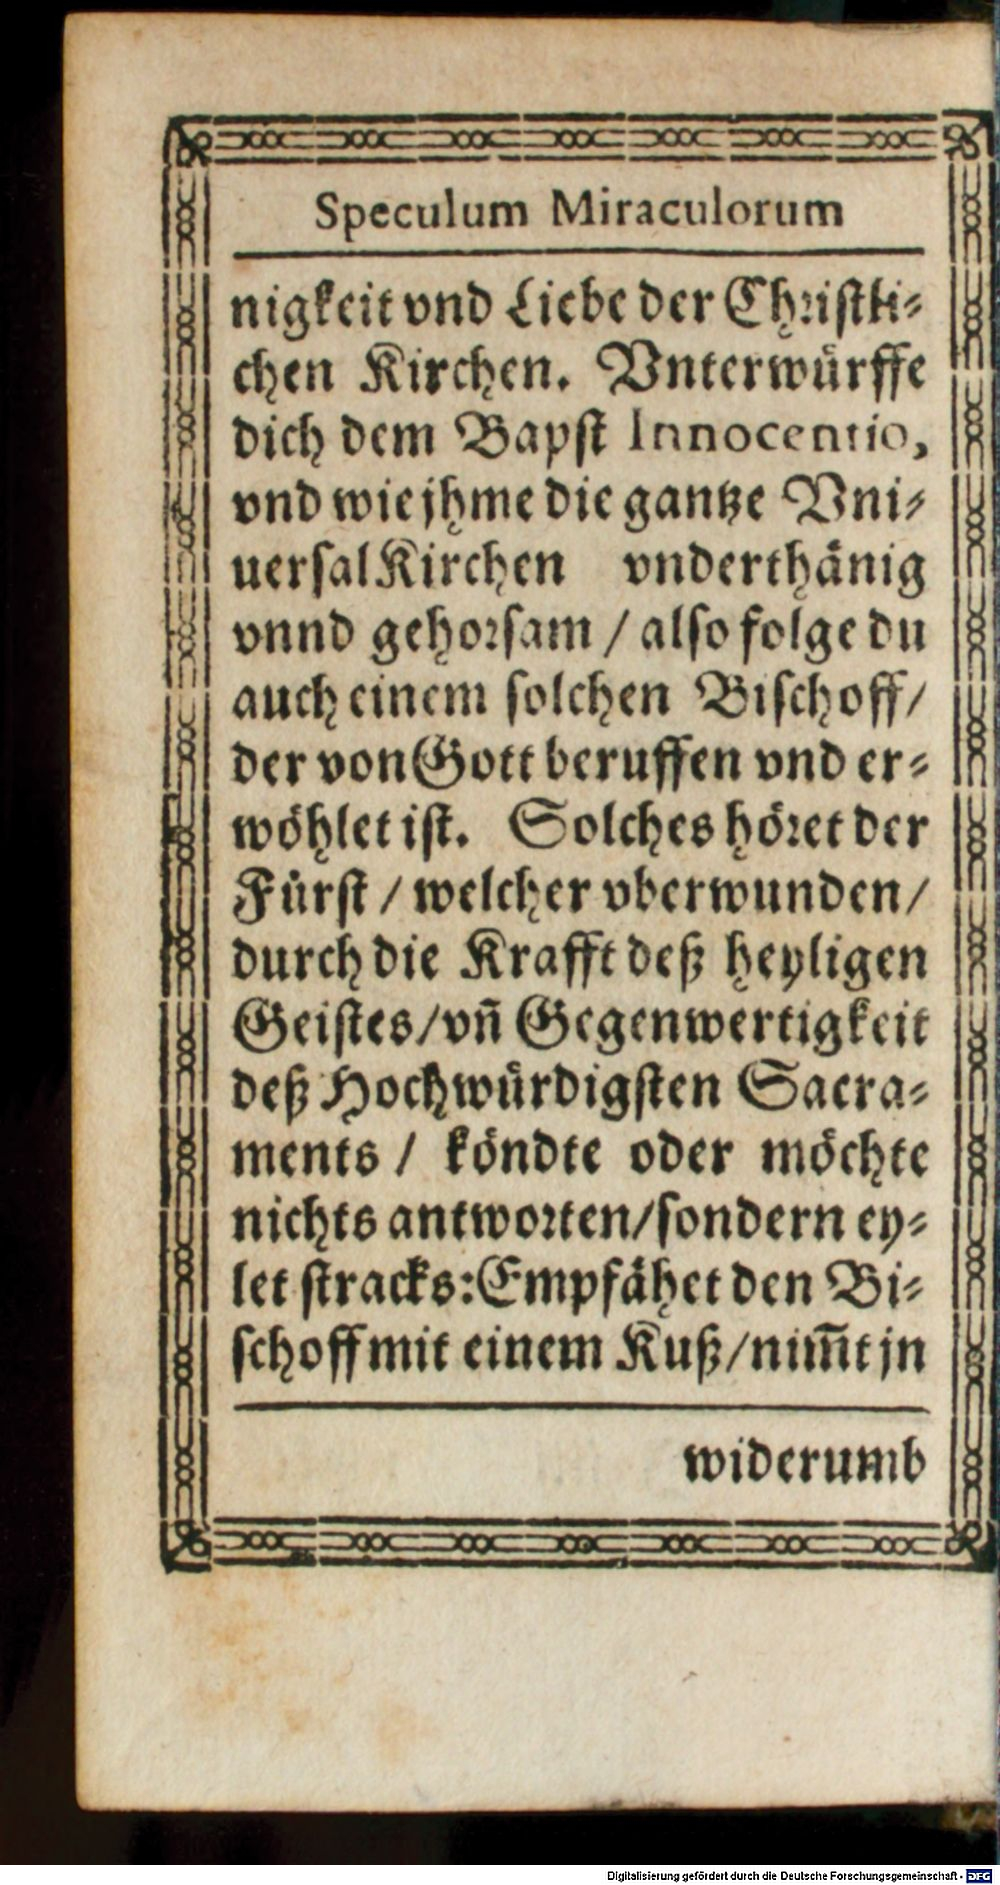 Speculum Miraculorum
nigkeit vnd Liebe der Christli-
chen Kirchen. Vnterwürffe
dich dem Bapst Innocentio,
vnd wie jhme die gantze Vni-
uersal Kirchen vnderthänig
vnnd gehorsam / also folge du
auch einem solchen Bischoff/
der von Gott beruffen vnd er-
wöhlet ist. Solches höret der
Fürst / welcher vberwunden/
durch die Krafft deß heyligen
Geistes/vñ Gegenwertigkeit
deß Hochwürdigsten Sacra-
ments / köndte oder möchte
nichts antworten/sondern ey-
let stracks: Empfähet den Bi-
schoff mit einem Kuß/nim̃t jn
widerumb
Digitalisierung gefördert durch die Deutsche Forschungsgemeinschaft - DFG